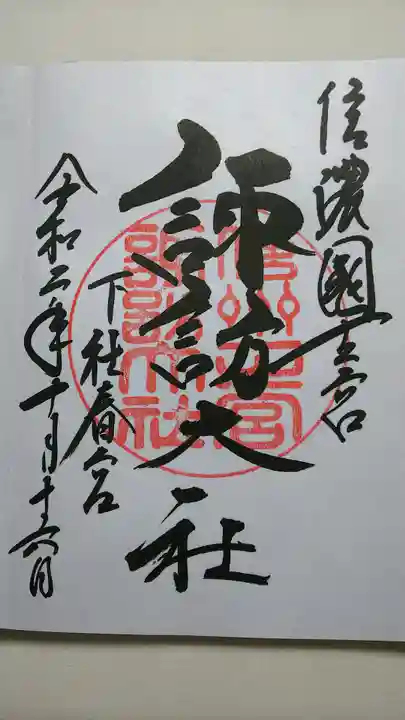 信濃國一之宮
諏訪大社
下社春宮
令和二年十月十六日